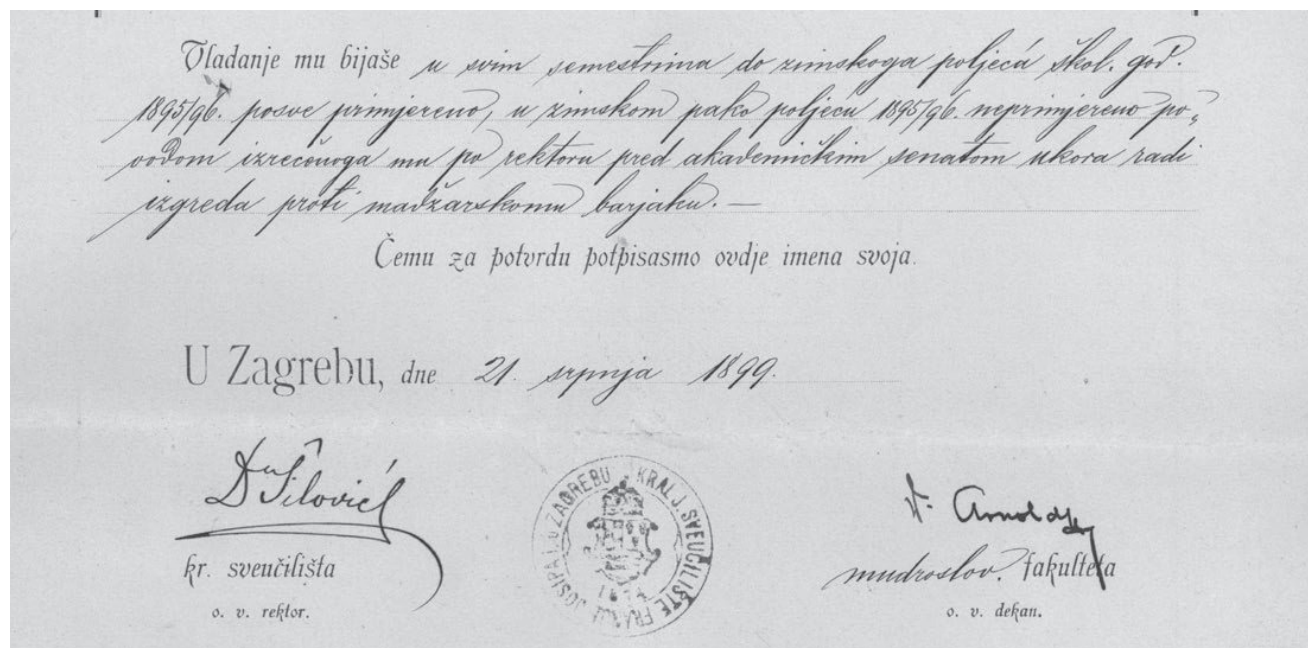 Vladanje mu bijaše u svim semestrima do zimskoga poljeća škol. god.
1895/96. posve primjereno, u zimskom pako poljeću 1895/96. neprimjereno po„
vodom izrečenoga mu po rektoru pred akademičkim senatom ukora radi
izgreda proti madžarskomu barjaku. —
Čemu za potvrdu potpisasmo ovdje imena svoja.
U Zagrebu, dne 21. srpnja 1899.
Dr Šilović
kr. sveučilišta
o. v. rektor.
KRALJ. SVEUČILIŠTE FRANJE JOSIPA I. U ZAGREBU
1874
Arnold
mudroslov. fakulteta
o. v. dekan.